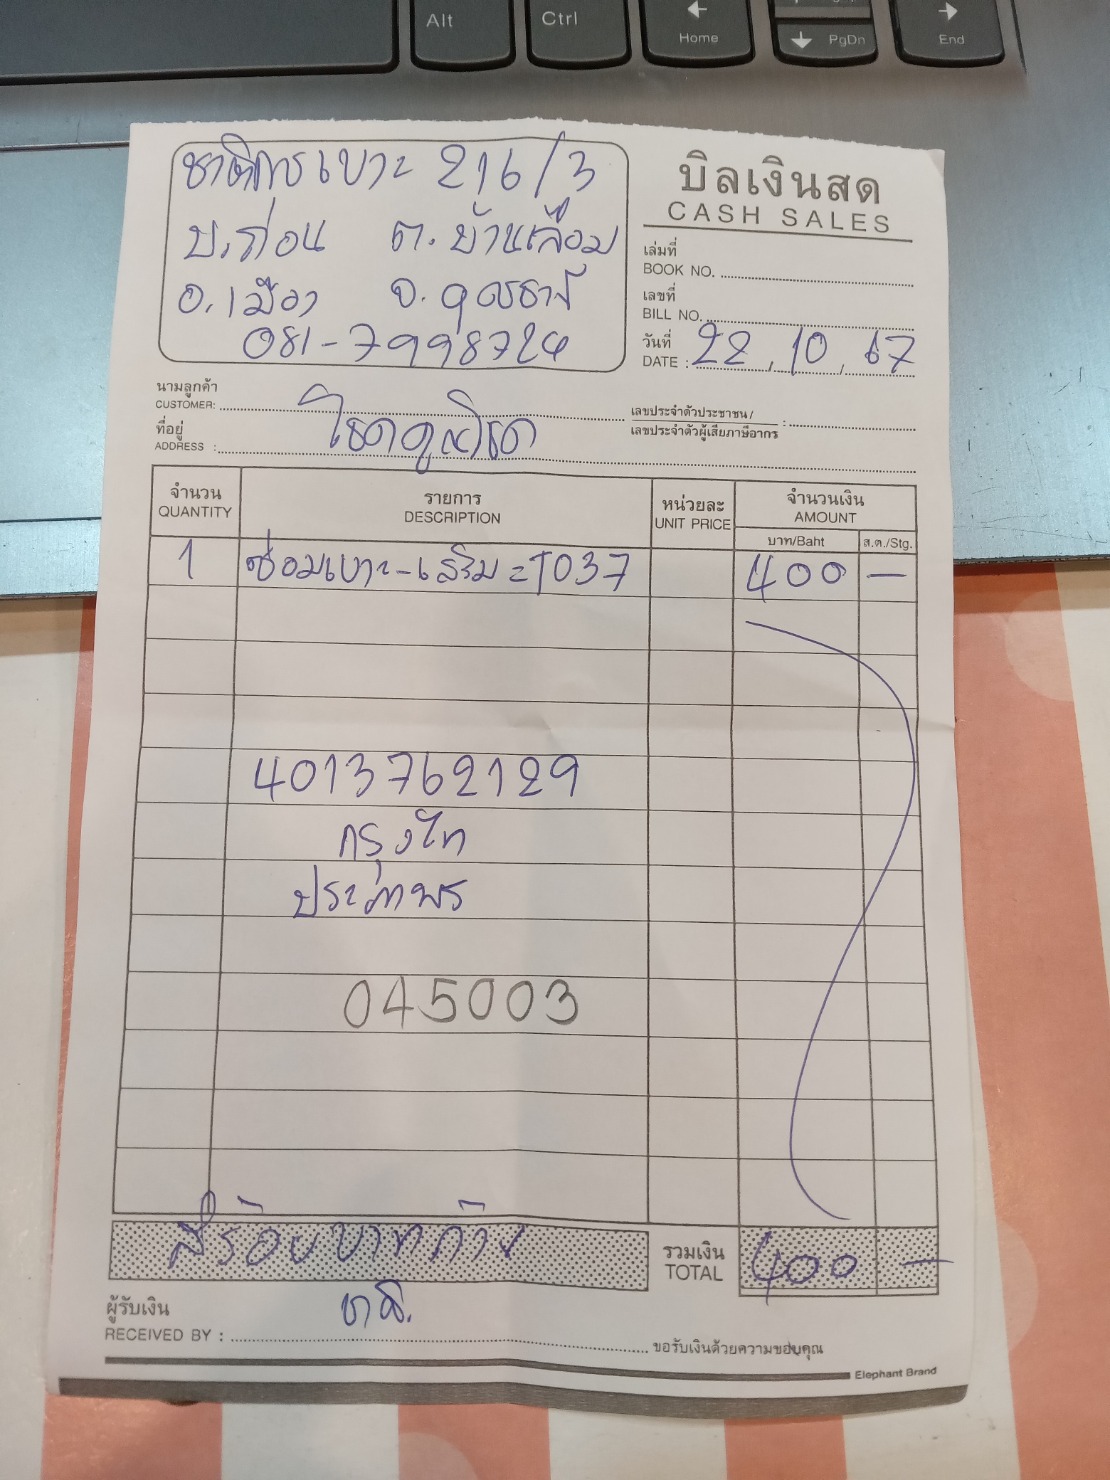 Alt
Ctrl
Home
PgDn
End
ชาติการเบาะ 216/3
บ.ก่อน ต.บ้านเลื่อม
อ.เมือง จ.อุดรธานี
081-7998724
บิลเงินสด
CASH SALES
เล่มที่
BOOK NO.
เลขที่
BILL NO.
วันที่
DATE : 22, 10, 67
นามลูกค้า
CUSTOMER:
ที่อยู่
ADDRESS :
เลขประจำตัวประชาชน/
เลขประจำตัวผู้เสียภาษีอากร :
จำนวน
QUANTITY
รายการ
DESCRIPTION
หน่วยละ
UNIT PRICE
จำนวนเงิน
AMOUNT
บาท/Baht
ส.ต./Stg.
1 ซ่อมเบาะ-เสริม = T037 400 —
4013762129
กรุงไท
ประภาพร
045003
สี่ร้อยบาทถ้วน
รวมเงิน
TOTAL
400 —
ผู้รับเงิน
RECEIVED BY :
ขอรับเงินด้วยความขอบคุณ
Elephant Brand